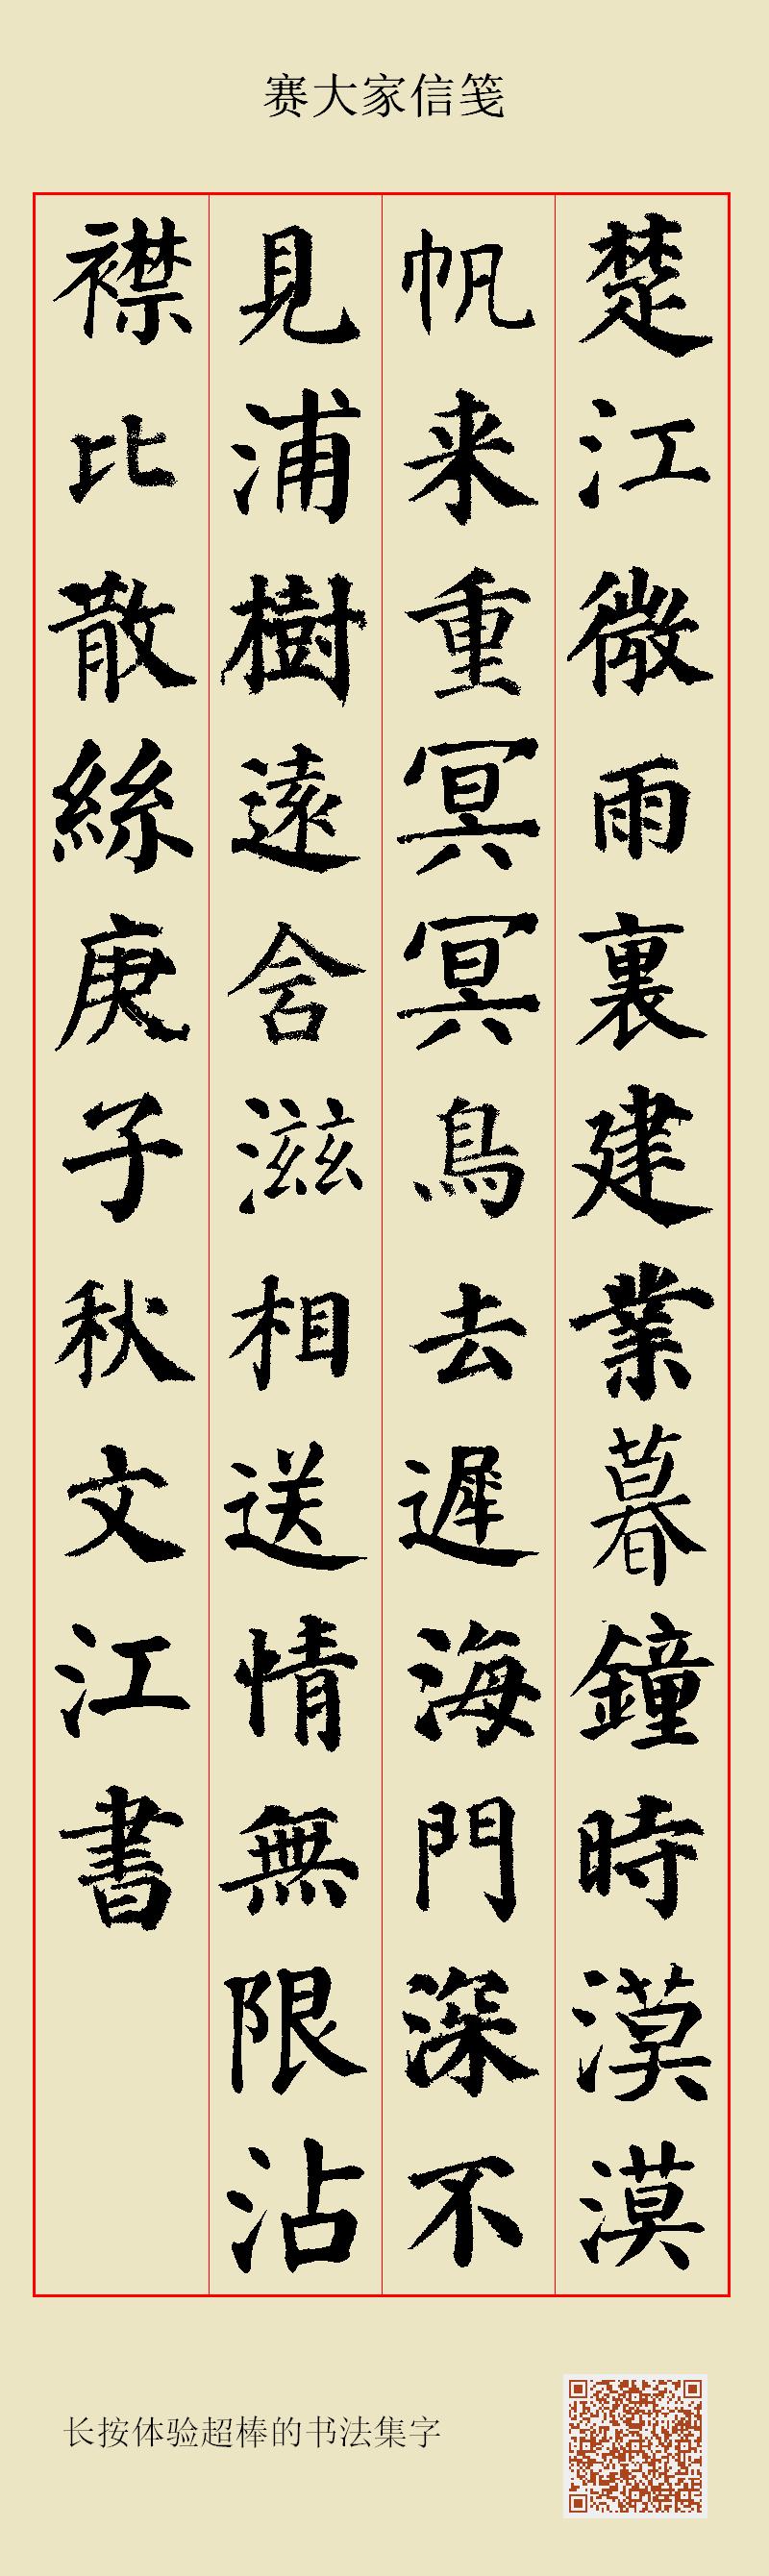 赛大家信笺
楚江微雨裏建業暮鐘時漠漠
帆来重冥冥鳥去遲海門深不
見浦樹遠含滋相送情無限沾
襟比散絲庚子秋文江書
长按体验超棒的书法集字